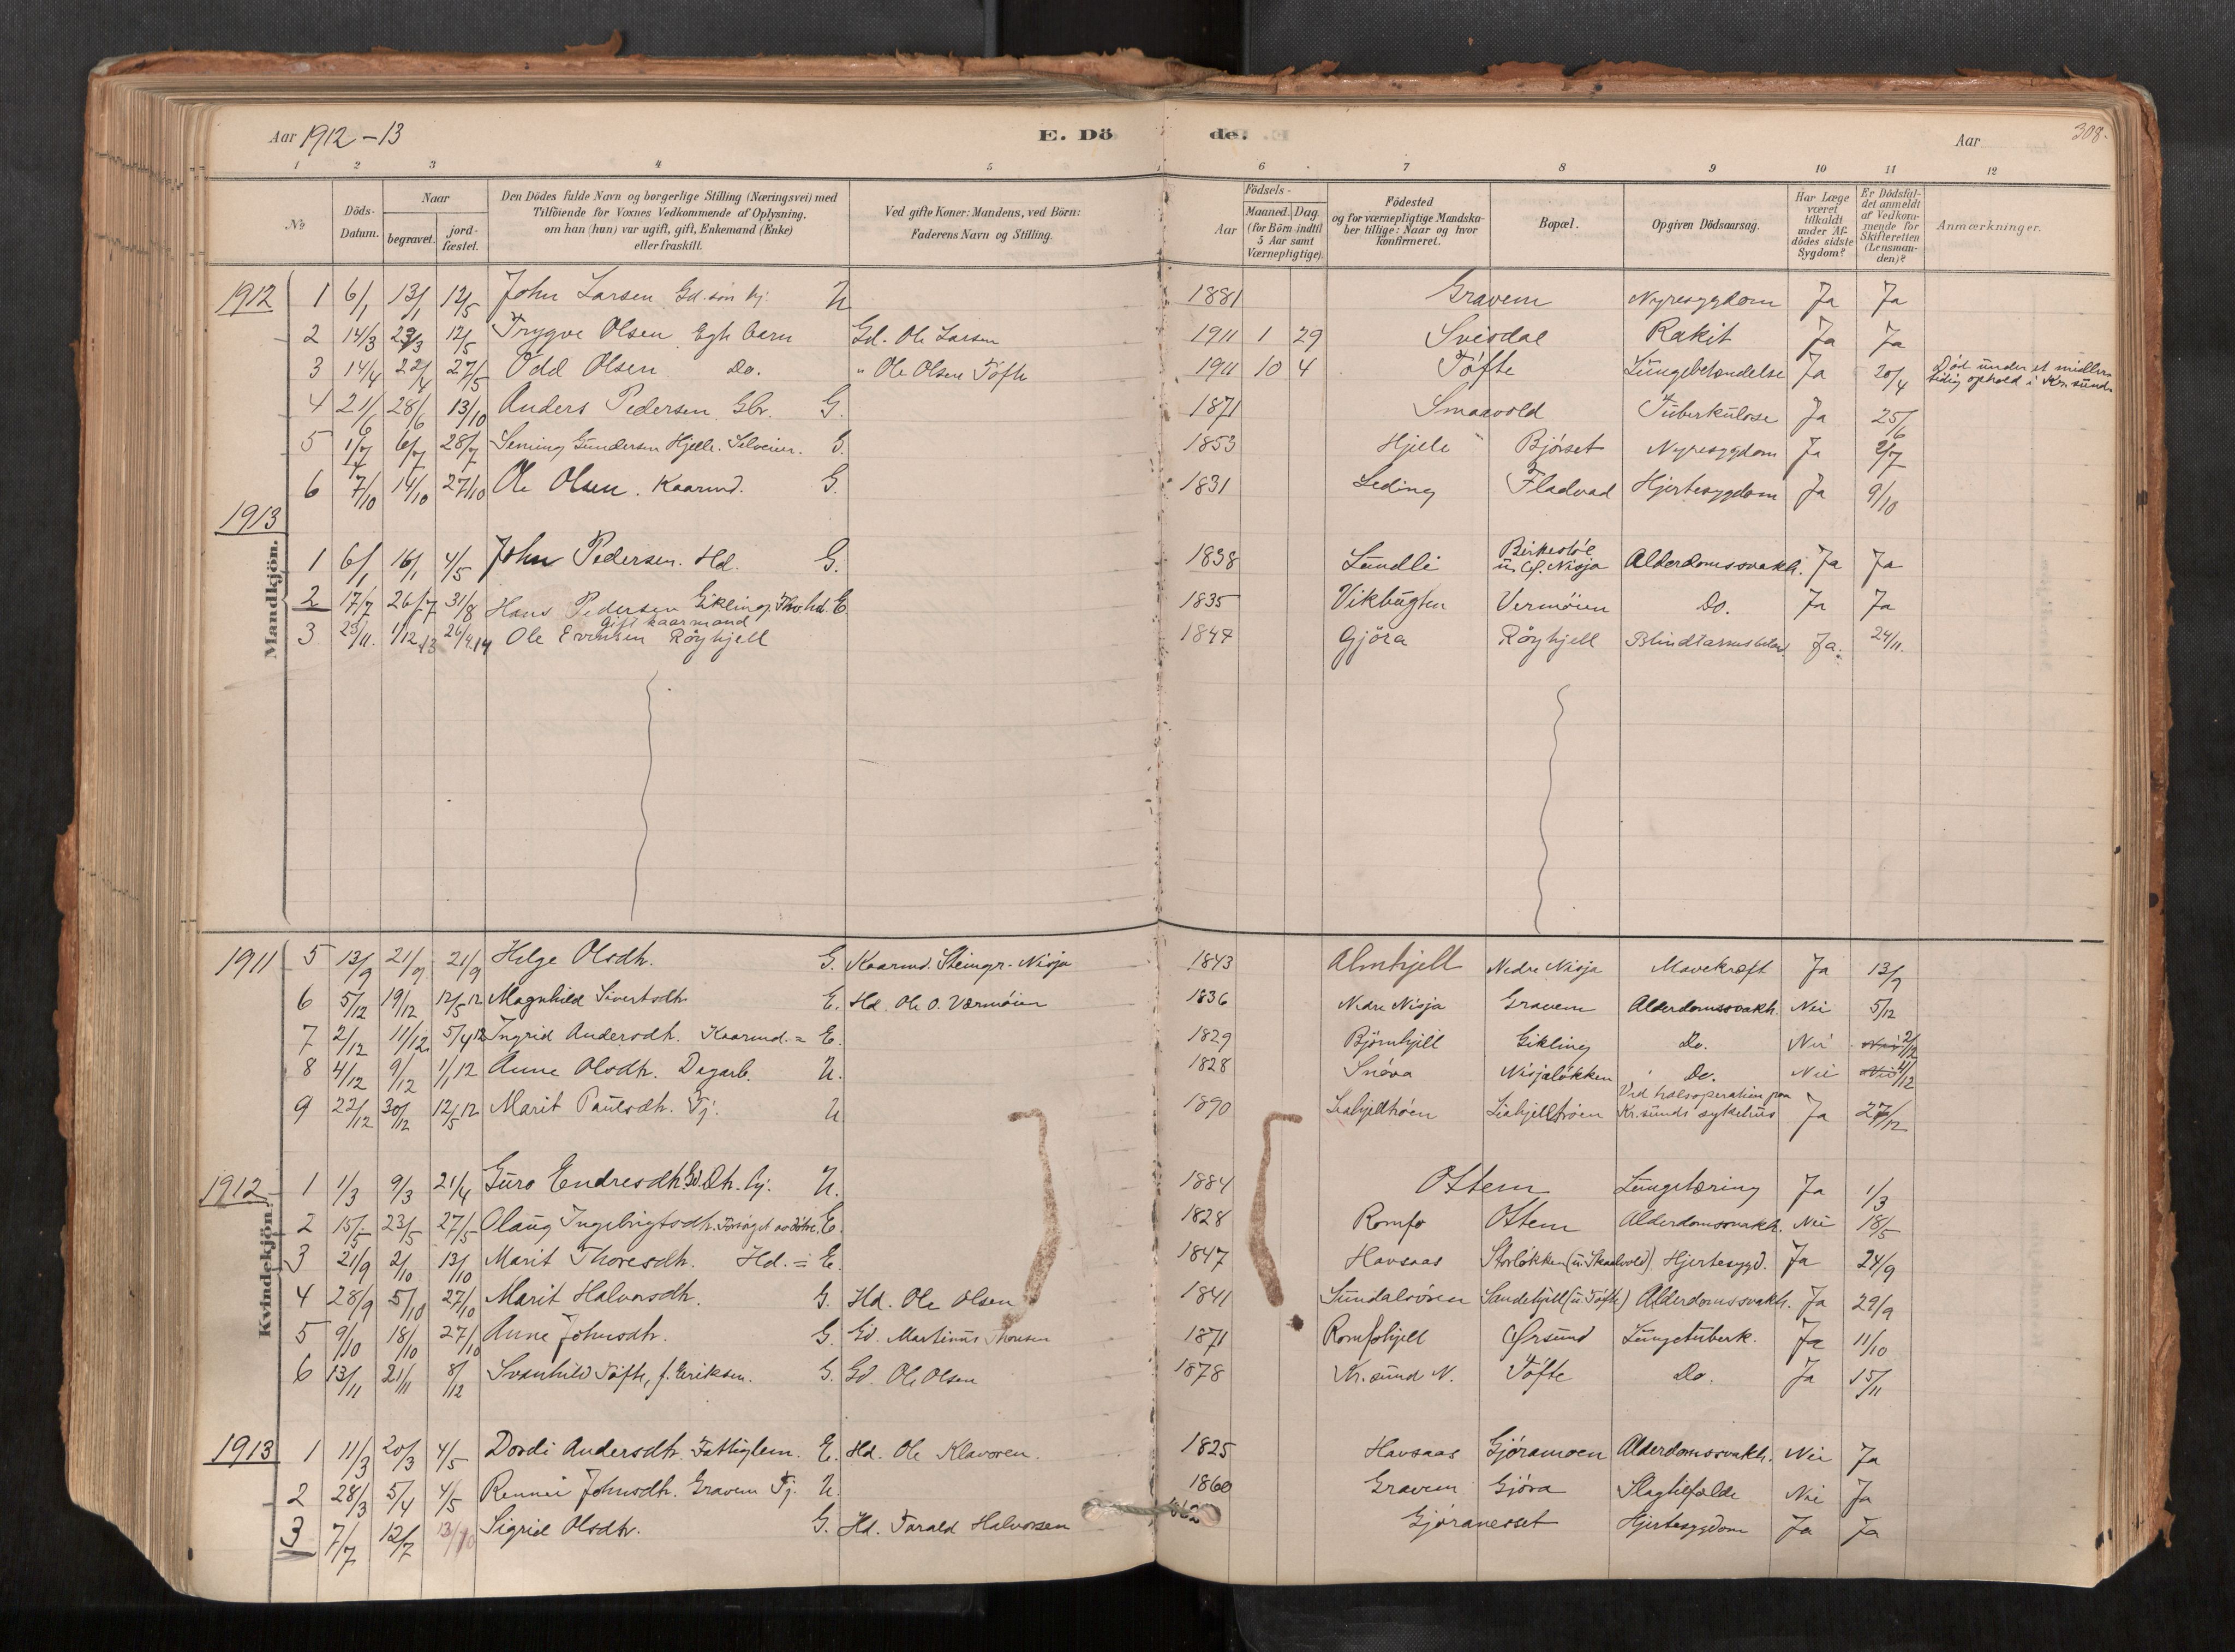 Aar 1912-13 E. Döde. Aar 308.
1 2 3 4 5 6 7 8 9 10 11 12
№ Döds-Datum. Naar begravet. jordfæstet. Den Dödes fulde Navn og borgerlige Stilling (Næringsvei) med Tilföiende for Voxnes Vedkommende af Oplysning, om han (hun) var ugift, gift, Enkemand (Enke) eller fraskilt. Ved gifte Koner: Mandens, ved Börn: Faderens Navn og Stilling. Aar Födsels- Maaned. Dag. (for Börn indtil 5 Aar samt Værnepligtige). Födested og for værnepligtige Mandskaber tillige: Naar og hvor konfirmeret. Bopæl. Opgiven Dödsaarsag. Har Læge været tilkaldt under Afdödes sidste Sygdom? Er Dödsfaldet anmeldt af Vedkommende for Skifteretten (Lensmanden)? Anmærkninger.
Mandkjön.
1912 1 6/1 13/1 12/5 John Larsen Gd. sön hj. U 1881 Gravem Nyresygdom Ja Ja
2 14/3 23/3 12/5 Trygve Olsen Egte barn Gd. Ole Larsen 1911 1 29 Svisdal Rakit Ja Ja
3 14/4 22/4 27/5 Odd Olsen Do. " Ole Olsen Töfte 1911 10 4 Töfte Lungebetændelse Ja 20/4 Död under et midlertidig ophold i Kr.sund
4 21/6 28/6 13/10 Anders Pedersen Gbr. G. 1871 Smaavold Tuberkulose Ja 25/6
5 1/7 6/7 28/7 Gundersen Hjelle. Selveier. G. 1853 Hjelle Bjórset Nyresygdom Ja 2/7
6 7/10 14/10 27/10 Ole Olsen. Kaarmd. G. 1831 Leding Fladvad Hjertesygdom Ja 9/10
1913
1 6/1 16/1 4/5 John Pedersen. Hd. G. 1838 Lundli Birkestöl u. Öf. Nisja Alderdomssvakh. Ja Ja
2 17/7 26/7 31/8 Hans Pedersen Gikling, Fhv. hd. E. 1835 Vikbugten Vermöien Do. Ja Ja
3 23/11. 1/12 13 26/4 14 Ole Evensen Röyhjell Gift kaarmand 1847 Gjöra Röyhjell Blindtarmsbetæd. Ja. 24/11.
Kvindekjön.
1911 5 13/9 21/9 21/9 Helge Olsdtr. G. Kaarmd. Steingr. Nisja 1843 Almhjell Nedre Nisja Mavekræft Ja 13/9
6 5/12 19/12 12/5 12 Magnhild Sivertsdtr. E. Hd. Ole O. Værmöien 1836 Nedre Nisja Gravem Alderdomssvakh. Nei 5/12
7 2/12 11/12 5/4 12 Ingrid Andersdtr. Kaarmd. = E. 1829 Björnhjell Gikling Do. Nei Nei 2/12
8 4/12 9/12 1/1 12 Anne Olsdtr. Dagarb. U. 1828 Snöva Nisjalökken Do. Nei Nei 4/12
9 22/12 30/12 12/5 12 Marit Paulsdtr. Tj. U 1890 Liahjelltröen Liahjelltröen Ved halsoperation paa Kr.sunds sykehus Ja 27/12
1912 1 1/3 9/3 21/4 Guro Endresdtr. Gd. Dtr. hj. U. 1884 Ottem Lungetæring Ja 1/3
2 15/5 23/5 27/5 Olaug Ingebrigtsdtr. Forsörget av dötre. E. 1828 Romfo Ottem Alderdomssvakh. Nei 18/5
3 21/9 2/10 13/10 Marit Thoresdtr. Hd. = E. 1847 Havsaas Storlökken (u. Skaalvold) Hjertesygd. Ja 24/9
4 28/9 5/10 27/10 Marit Halvorsdtr. G. Hd. Ole Olsen 1841 Sundalsören Sandehjell (u. Töfte) Alderdomssvakh. Ja 29/9
5 9/10 18/10 27/10 Anne Johnsdtr. G. Gd. Martinus Thoresen 1871 Romfohjell Örsund Lungetuberk. Ja 11/10
6 13/11 21/11 8/12 Svanhild Töfte, f. Eriksen. G. Gd. Ole Olsen 1878 Kr.sund N. Töfte Do. Ja 15/11
1913 1 11/3 20/3 4/5 Dordi Andersdtr. Fattiglem. E. Hd. Ole Klavoren. 1825 Havsaas Gjöramoen Alderdomssvakh. Nei Ja
2 28/3 5/4 4/5 Rennei Johnsdtr. Gravem Tj. U. 1860 Gravem Gjöra Slagtilfælde Nei Ja
3 7/7 12/7 13/10 Sigrid Olsdtr. G. Hd. Tarald Halvorsen 1862 Gjöranesset Hjertesygdom Ja Ja